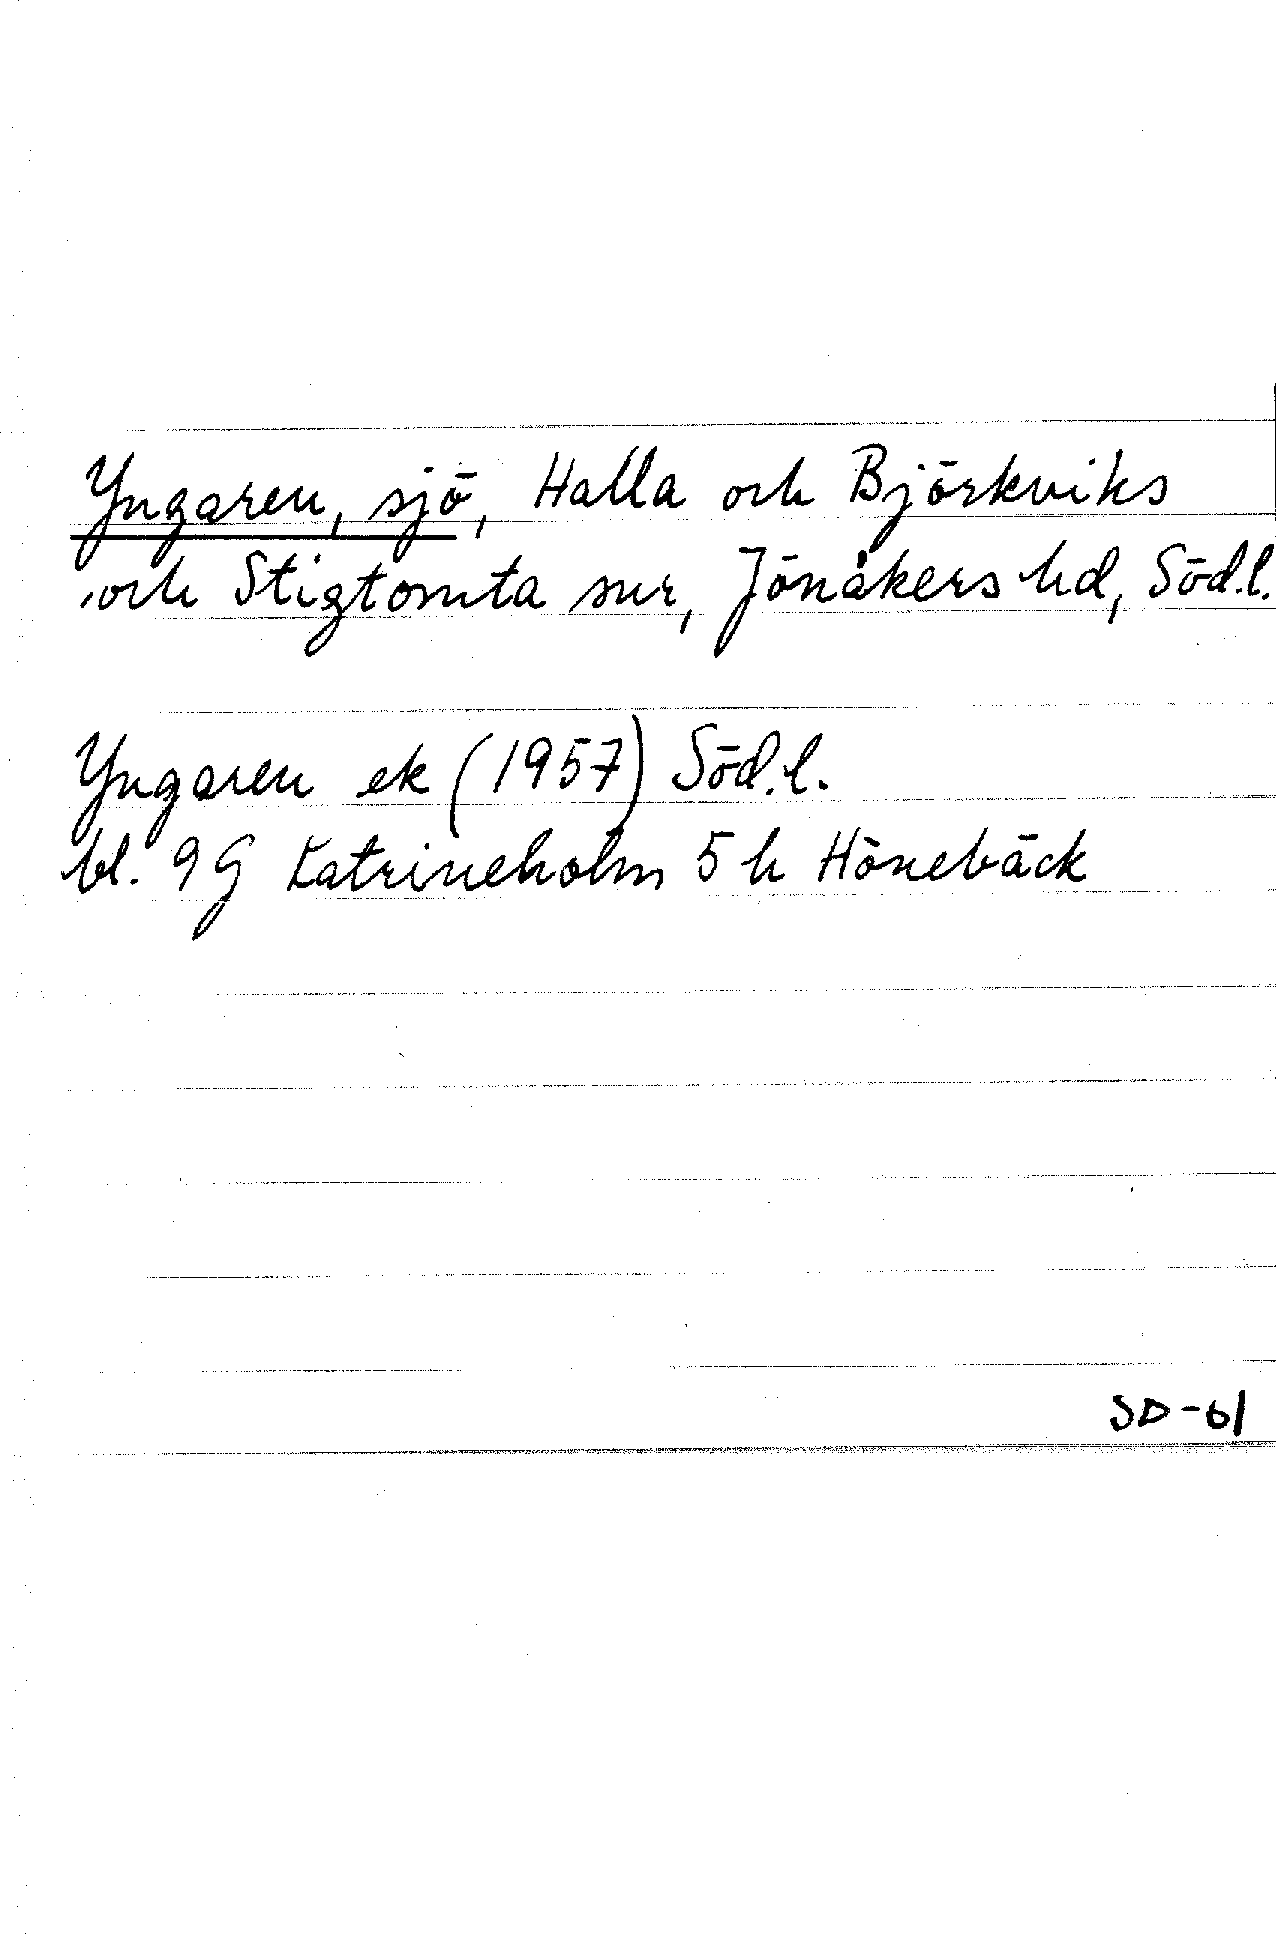 Yngaren, sjö, Halla och Björkviks
och Stigtomta snr, Jönåkers hd, Söd.l.
Yngaren ek (1957) Söd.l.
bl. 9G Katrineholm 5h Hönebäck
SD-61